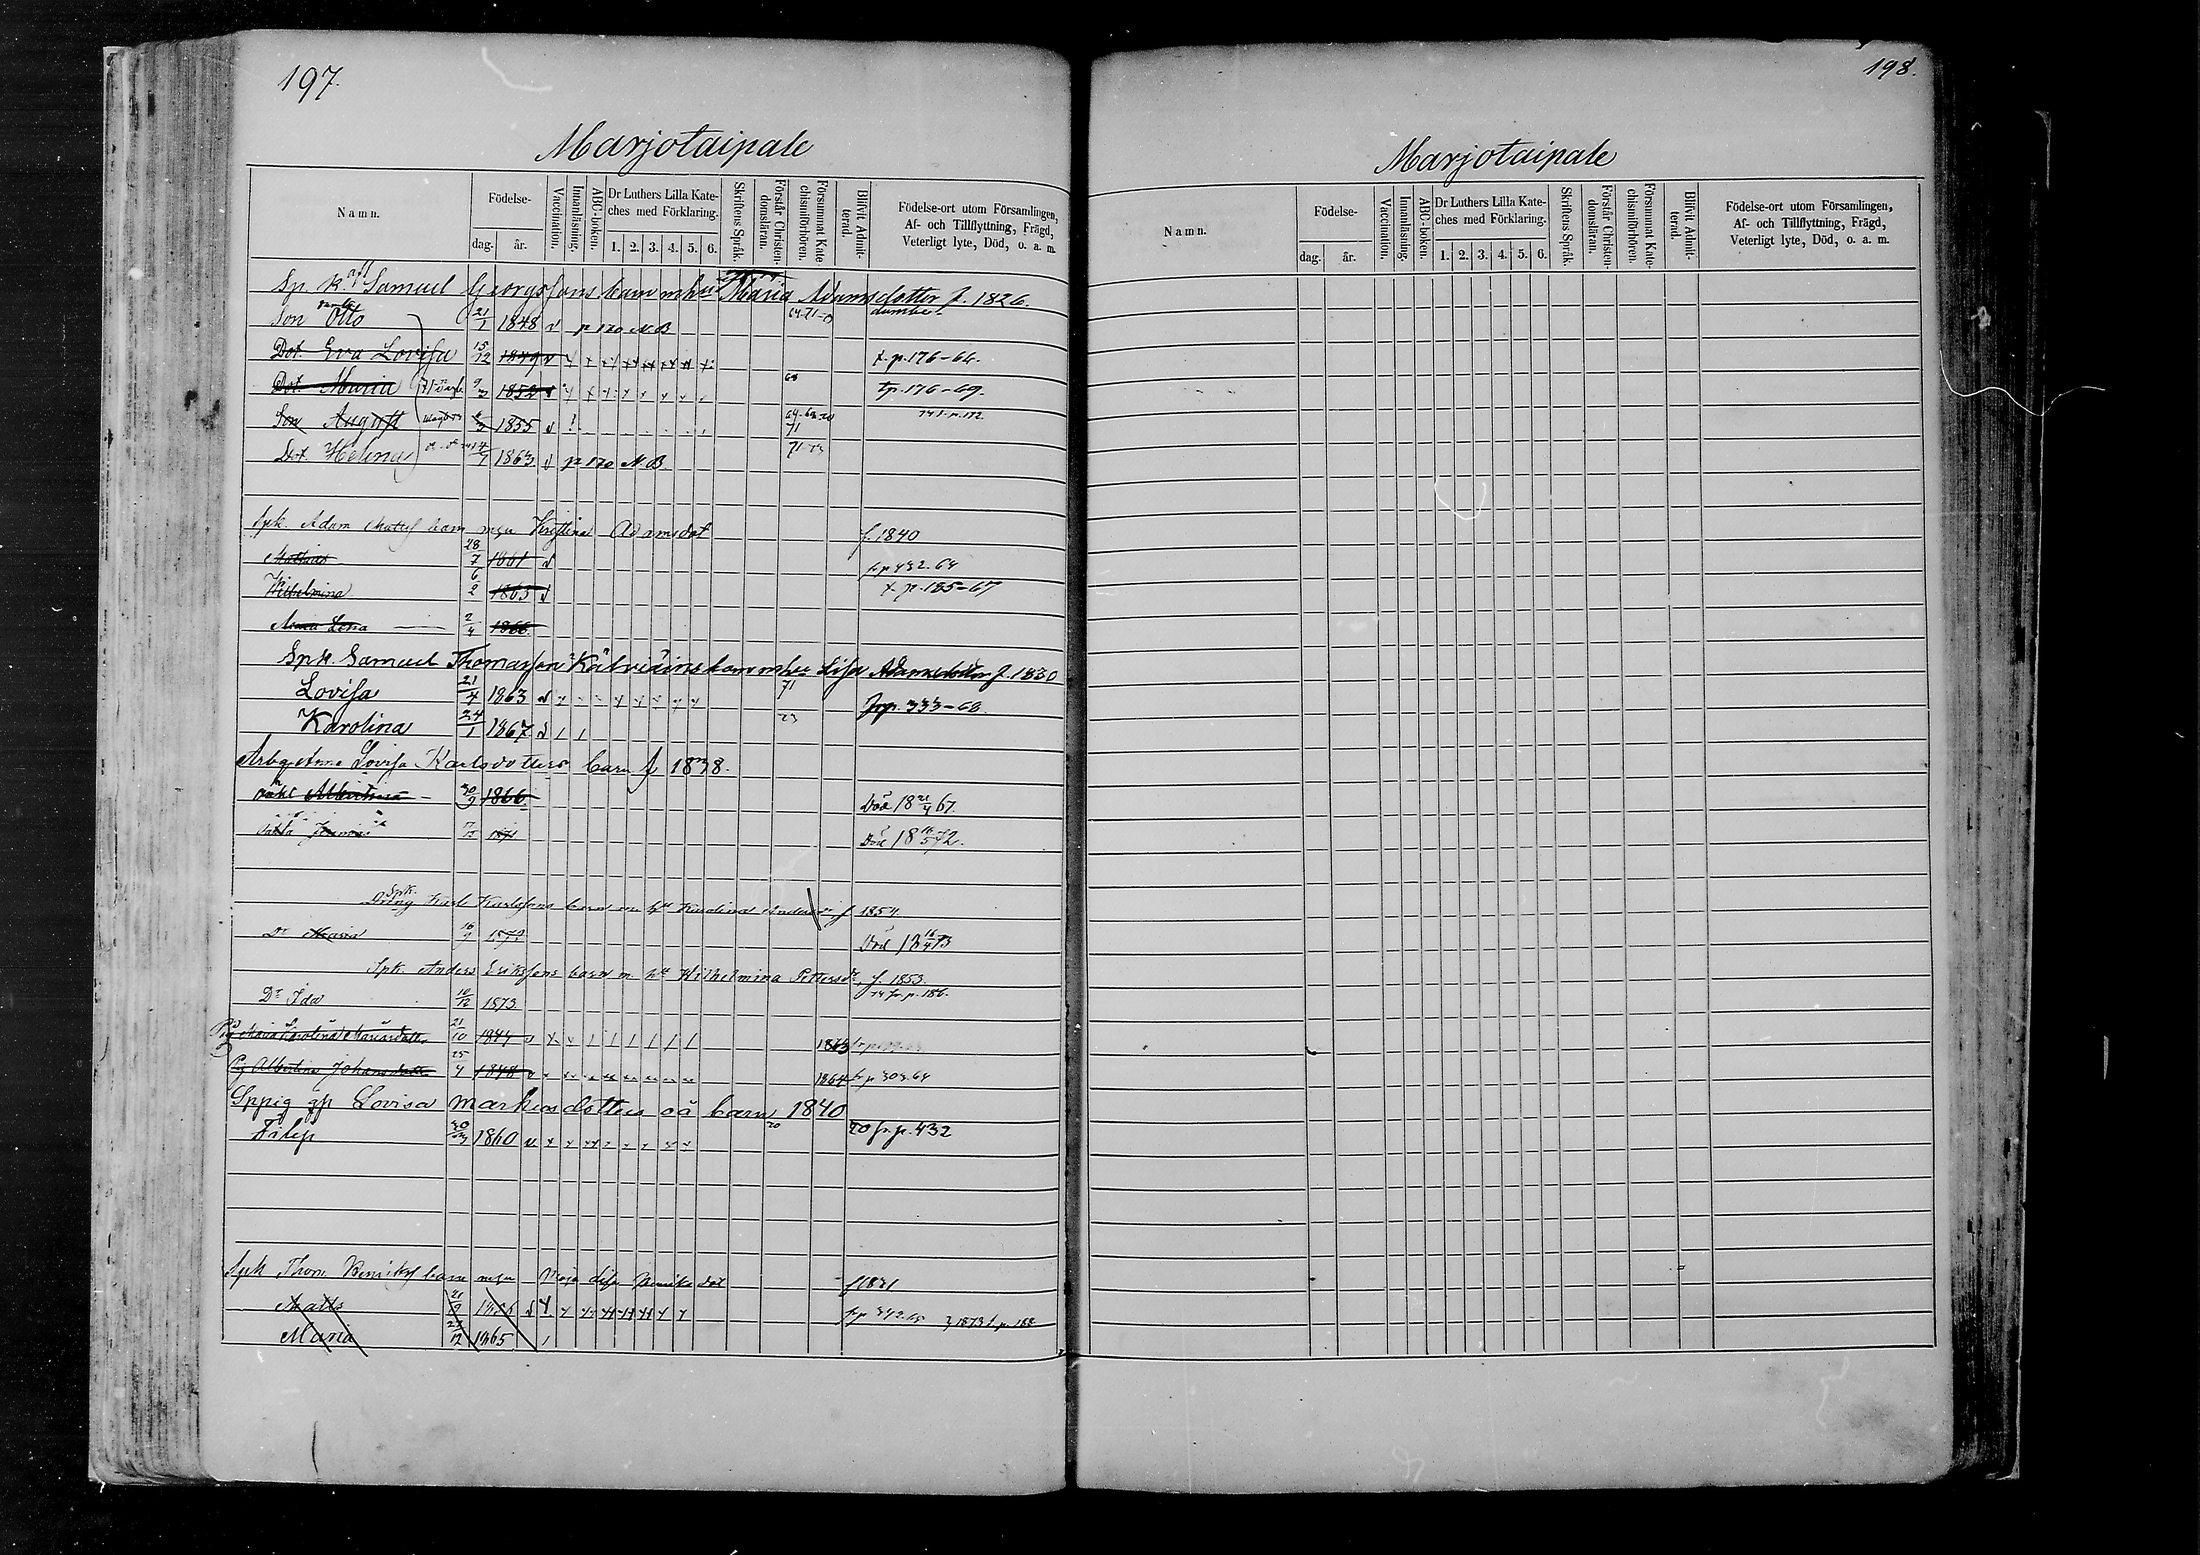 197.
Marjotaipale
Namn.
Födelse-
dag. år.
Vaccination.
Innanläsning.
ABC-boken.
Dr Luthers Lilla Kate-
ches med Förklaring.
1. 2. 3. 4. 5. 6.
Skriftens Språk.
Förstår Christen-
domsläran.
Försummat Kate-
chismiförhören.
Blifvit Admit-
terad.
Födelse-ort utom Församlingen,
Af- och Tillflyttning, Frägd,
Veterligt lyte, Död, o. a. m.
Sp. K Samuel Georgssons barn m hu Maria Adamsdotter f. 1826.
Son Otto 21/1 1848 p 170 NB 64-71-73 dumbe
Dot. Eva Lovisa 15/12 1849 t. p. 176-64.
Dot. Maria 9/3 1852 68 t p. 176-69.
Son August 1855 71
Dot. Helena 1863 p 170 NB 71-73
Spk. Adam barn Kristina Adamsdot f. 1840
Mathias 28/7 1861 fr p 432.64
Wilhelmina 6/2 1863 t. p. 185-67
Anna Lena 2/4 1866
Spk. Samuel Thomasson Kälviäins barn m hu Lisa Adamsdotter f. 1830
Lovisa 21/4 1863 71 fr p. 333-68.
Karolina 24/1 1867 73
Arbq Anna Lovisa Karlsdotters barn f 1838.
oäkt Albertina 30/9 1866 Död 18 21/4 67.
1871 Död 18 72.
Spk.
Dräng Karl Karlssons barn m hu f 1854.
Dr Maria 16/9 1872 Död 18 16/4 73
Spk. Anders Erikssons barn m hu Wilhelmina Pettersdr f. 1853.
Dr Ida 10/12 1873 74 fr. p. 186.
Pig Maria Karolina 21/10 1844 1863
Pig Albertina Johansdotter 25/4 1848 1864 fr p 303.64
Sppig gp Lovisa Markusdotters oä barn 1840
Filip 30/3 1860 70 70 fr. p. 432
Spk Thom Henrikss barn Maja Lisa Henriksdot f 1831
Matts 21/9 fr p 342.65 1873 t. p. 188
Maria 27/12 1865
198.
Marjotaipale
Namn.
Födelse-
dag. år.
Vaccination.
Innanläsning.
ABC-boken.
Dr Luthers Lilla Kate-
ches med Förklaring.
1. 2. 3. 4. 5. 6.
Skriftens Språk.
Förstår Christen-
domsläran.
Försummat Kate-
chismiförhören.
Blifvit Admit-
terad.
Födelse-ort utom Församlingen,
Af- och Tillflyttning, Frägd,
Veterligt lyte, Död, o. a. m.